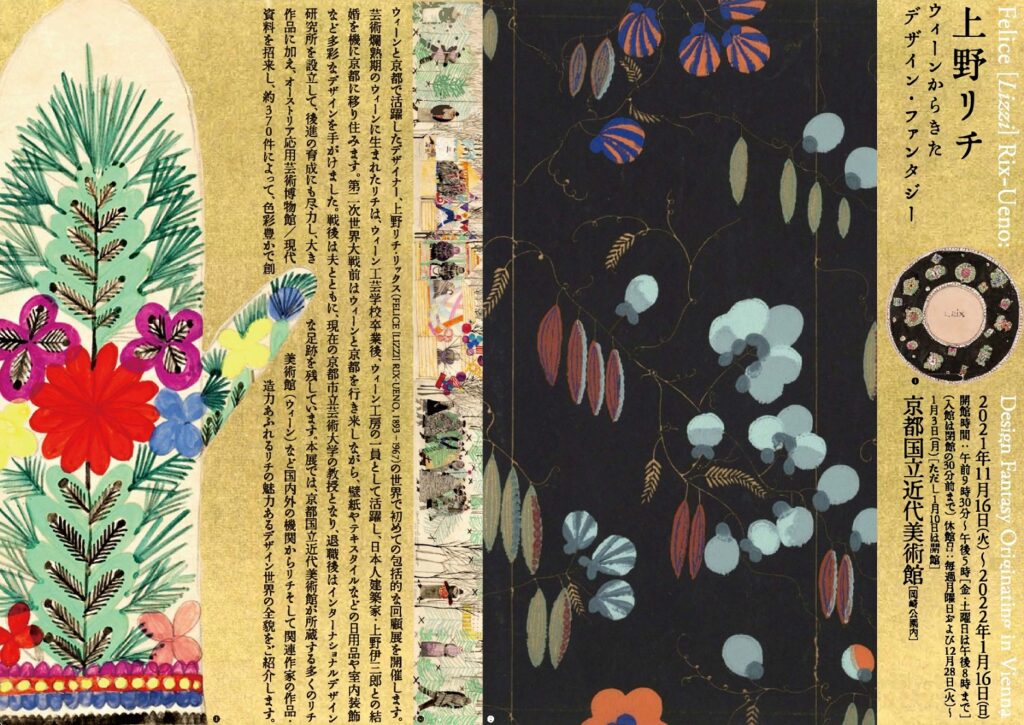 Felice [Lizzi] Rix-Ueno:
Design Fantasy Originating in Vienna
上野リチ
ウィーンからきた
デザイン・ファンタジー
L.RiX
1
2021年11月16日(火)〜2022年1月16日(日)
開館時間：午前9時30分〜午後5時[金・土曜日は午後8時まで]
(入館は閉館の30分前まで) 休館日：毎週月曜日および12月28日(火)〜
1月3日(月)[ただし1月10日は開館]
京都国立近代美術館[岡崎公園内]
2
ウィーンと京都で活躍したデザイナー、上野リチ・リックス(FELICE [LIZZI] RIX-UENO, 1893–1967)の世界で初めての包括的な回顧展を開催します。
芸術爛熟期のウィーンに生まれたリチは、ウィーン工芸学校卒業後、ウィーン工房の一員として活躍し、日本人建築家・上野伊三郎との結
婚を機に京都に移り住みます。第二次世界大戦前はウィーンと京都を行き来しながら、壁紙やテキスタイルなどの日用品や室内装飾
など多彩なデザインを手がけました。戦後は夫とともに、現在の京都市立芸術大学の教授となり、退職後はインターナショナルデザイン
研究所を設立して、後進の育成にも尽力し、大きな足跡を残しています。本展では、京都国立近代美術館が所蔵する多くのリチ
作品に加え、オーストリア応用芸術博物館／現代美術館(ウィーン)など国内外の機関からリチそして関連作家の作品・
資料を招来し、約370件によって、色彩豊かで創造力あふれるリチの魅力あるデザイン世界の全貌をご紹介します。
3